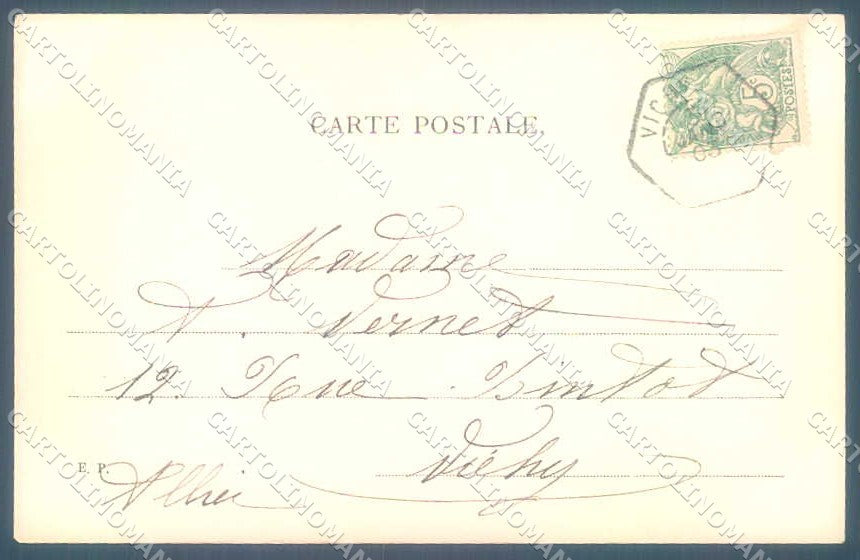 5c
POSTES
VICHY
CARTE POSTALE.
Madame
A. Vernet
12. Rue
Vichy
E. P.
Allier
CARTOLINOMANIA